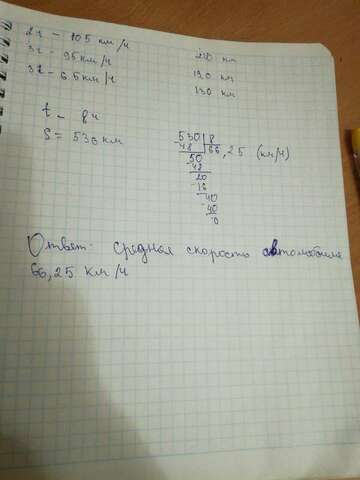 2ч - 105 км/ч 210 км
3ч - 95км/ч 190 км
3ч - 65км/ч 130 км
t - 8ч
S = 530 км
530 8
-48 66,25 (км/ч)
50
-48
20
-16
40
-40
0
Ответ: средная скорость автомобиля
66,25 км/ч